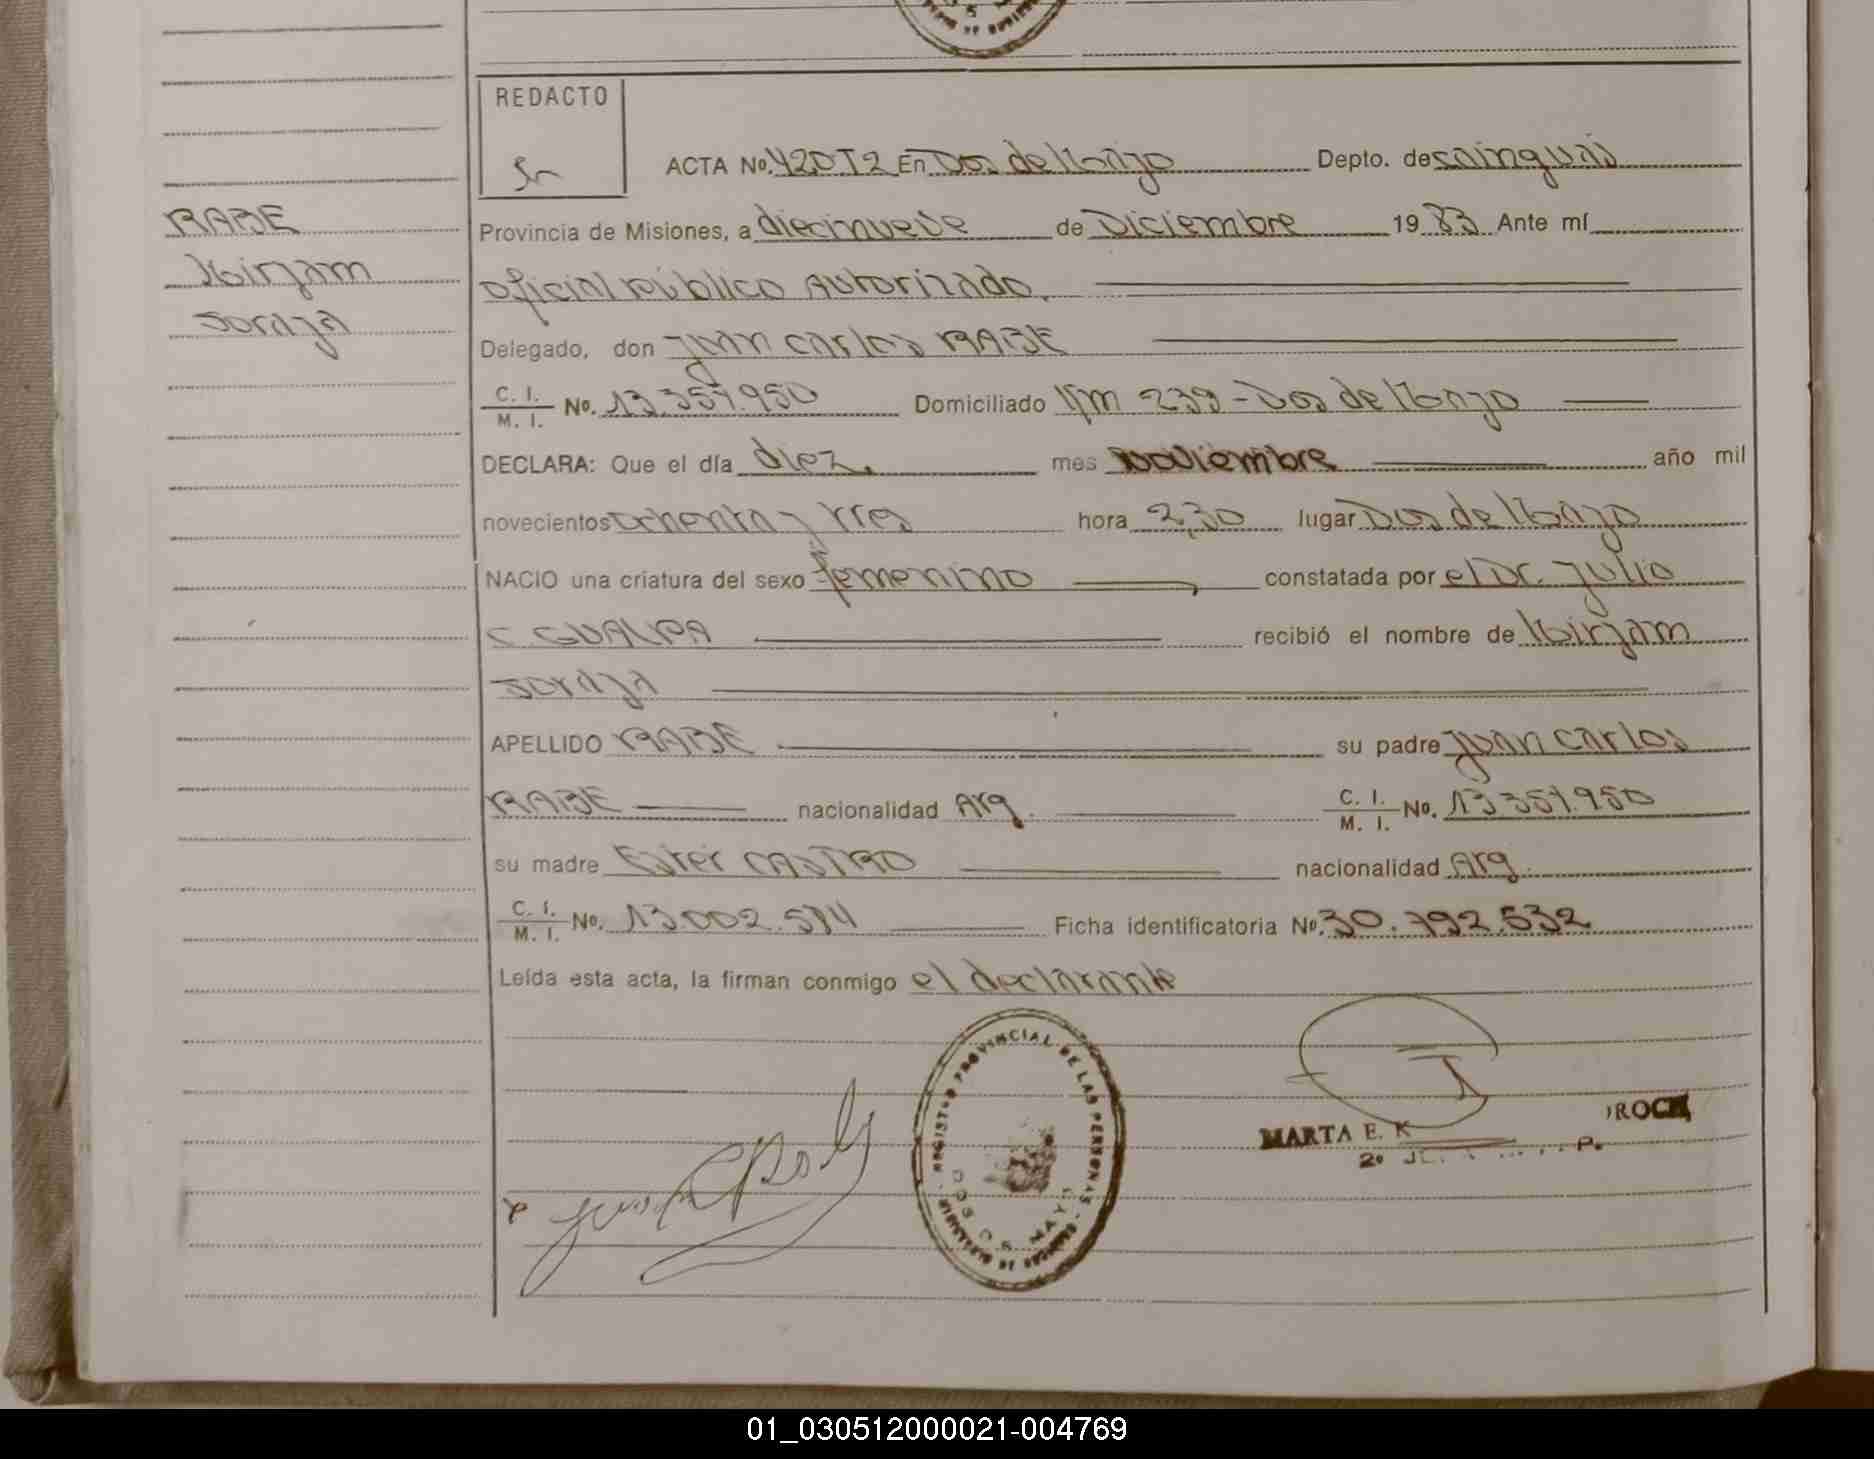 REDACTO
ACTA No. 420T2 En Dos de Mayo Depto. de Cainguás
RABE
Provincia de Misiones, a diecinueve de Diciembre 1983 Ante mí
Mirjam
oficial público Autorizado.
Soraja
Delegado, don Juan Carlos RABE
C. I.
M. I. No. 13.359.950 Domiciliado Km 239 - Dos de Mayo
DECLARA: Que el día diez. mes noviembre año mil
novecientos ochenta y tres hora 2,30 lugar Dos de Mayo
NACIO una criatura del sexo femenino constatada por el Dr. Julio
C. GUALPA recibió el nombre de Mirjam
Soraja
APELLIDO RABE su padre Juan Carlos
RABE nacionalidad Arg. C. I.
M. I. No. 13.359.950
su madre Ester CASTRO nacionalidad Arg.
C. I.
M. I. No. 13.002.584 Ficha identificatoria No. 30.792.532
Leída esta acta, la firman conmigo el declarante
REGISTRO PROVINCIAL DE LAS PERSONAS
DOS DE MAYO
MARTA E. K
01_030512000021-004769